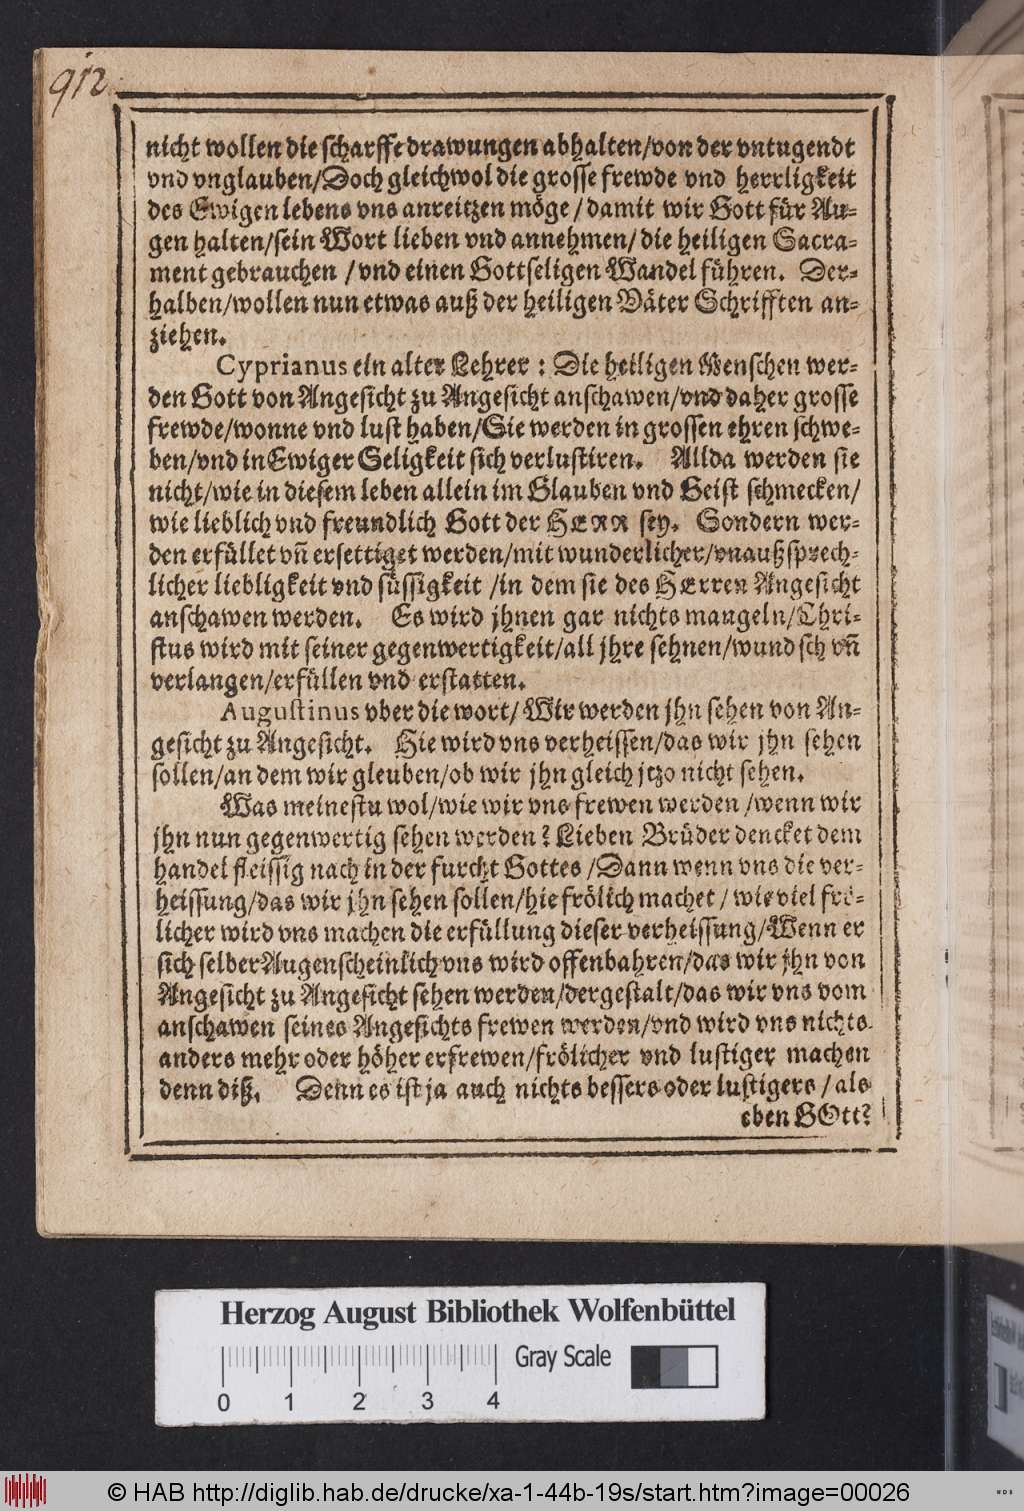 912
nicht wollen die scharffe drawungen abhalten/von der vntugendt
vnd vnglauben/Doch gleichwol die grosse frewde vnd herrligkeit
des Ewigen lebens vns anreitzen möge/damit wir Gott für Au-
gen halten/sein Wort lieben vnd annehmen/die heiligen Sacra-
ment gebrauchen/vnd einen Gottseligen Wandel führen. Der-
halben/wollen nun etwas auß der heiligen Väter Schrifften an-
ziehen.
Cyprianus ein alter Lehrer: Die heiligen Menschen wer-
den Gott von Angesicht zu Angesicht anschawen/vnd daher grosse
frewde/wonne vnd lust haben/Sie werden in grossen ehren schwe-
ben/vnd in Ewiger Seligkeit sich verlustiren. Allda werden sie
nicht/wie in diesem leben allein im Glauben vnd Geist schmecken/
wie lieblich vnd freundlich Gott der HERR sey. Sondern wer-
den erfüllet vñ ersettiget werden/mit wunderlicher/vnaußsprech-
licher liebligkeit vnd süssigkeit/in dem sie des HErren Angesicht
anschawen werden. Es wird jhnen gar nichts mangeln/Chri-
stus wird mit seiner gegenwertigkeit/all jhre sehnen/wundsch vñ
verlangen/erfüllen vnd erstatten.
Augustinus vber die wort/Wir werden jhn sehen von An-
gesicht zu Angesicht. Hie wird vns verheissen/das wir jhn sehen
sollen/an dem wir gleuben/ob wir jhn gleich jtzo nicht sehen.
Was meinestu wol/wie wir vns frewen werden/wenn wir
jhn nun gegenwertig sehen werden? Lieben Brüder dencket dem
handel fleissig nach in der furcht Gottes/Dann wenn vns die ver-
heissung/das wir jhn sehen sollen/hie frölich machet/wie viel frö-
licher wird vns machen die erfüllung dieser verheissung/Wenn er
sich selber Augenscheinlich vns wird offenbahren/das wir jhn von
Angesicht zu Angesicht sehen werden/dergestalt/das wir vns vom
anschawen seines Angesichts frewen werden/vnd wird vns nichts
anders mehr oder höher erfrewen/frölicher vnd lustiger machen
denn diß. Denn es ist ja auch nichts bessers oder lustigers/als
eben GOtt?
Herzog August Bibliothek Wolfenbüttel
Gray Scale
0 1 2 3 4
© HAB http://diglib.hab.de/drucke/xa-1-44b-19s/start.htm?image=00026